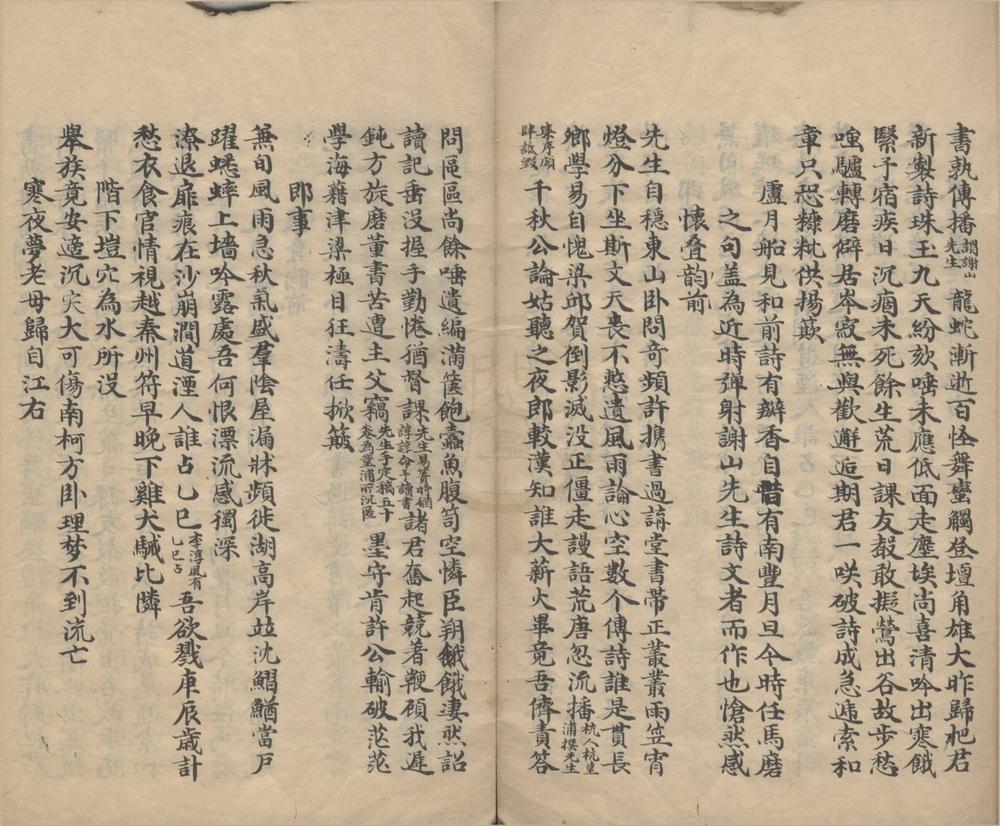 書孰傳播謂謝山先生龍蛇漸逝百怪舞蠻觸登壇角雄大昨歸袘君
新製詩珠玉九天紛欬唾未應低面走塵埃尚喜清吟出寒餓
緊予宿疾日沉痼未死餘生荒日課友聲敢擬鶯出谷故步愁
強驢轉磨僻居岑寂無與歡邂逅期君一咲破詩成急遞索和
章只恐糠粃供揚簸
盧月船見和前詩有瓣香自昔有南豐月旦今時任馬磨
之句盖為近時彈射謝山先生詩文者而作也愴然感
懷叠韵前
先生自穩東山卧問奇頻許携書過講堂書帶正叢叢雨笠宵
燈分下坐斯文天喪不憖遺風雨論心空數个傳詩誰是貫長
鄉學易自愧梁邱賀倒影滅没正僵走謾語荒唐忽流播杭人杭堇浦撰先生
集序頗肆詆毀千秋公論姑聽之夜郎較漢知誰大薪火畢竟吾儕責答
問區區尚餘唾遺編滿篋飽蠹魚腹笥空憐臣朔餓餓凄然詔
讀記垂没握手勤惓猶督課先生易簀時猶諄諄命予讀書諸君奮起競著鞭顧我遲
鈍方旋磨董書苦遭主父竊先生手定稿五十卷為堇浦所沉匿墨守肯許公輸破茫茫
學海藉津梁極目狂濤任掀簸
即事
無旬風雨急秋氣盛羣陰屋漏牀頻徙湖高岸竝沈鰼鰌當戸
躍蟋蟀上墻吟露處吾何恨漂流感獨深
潦退扉痕在沙崩澗道湮人誰占乙巳李淳風有乙巳占吾欲戮庚辰歲計
愁衣食官情視越秦州符早晚下雞犬駴比隣
階下螘穴為水所没
舉族竟安適沉灾大可傷南柯方卧理梦不到流亡
寒夜夢老母歸自江右